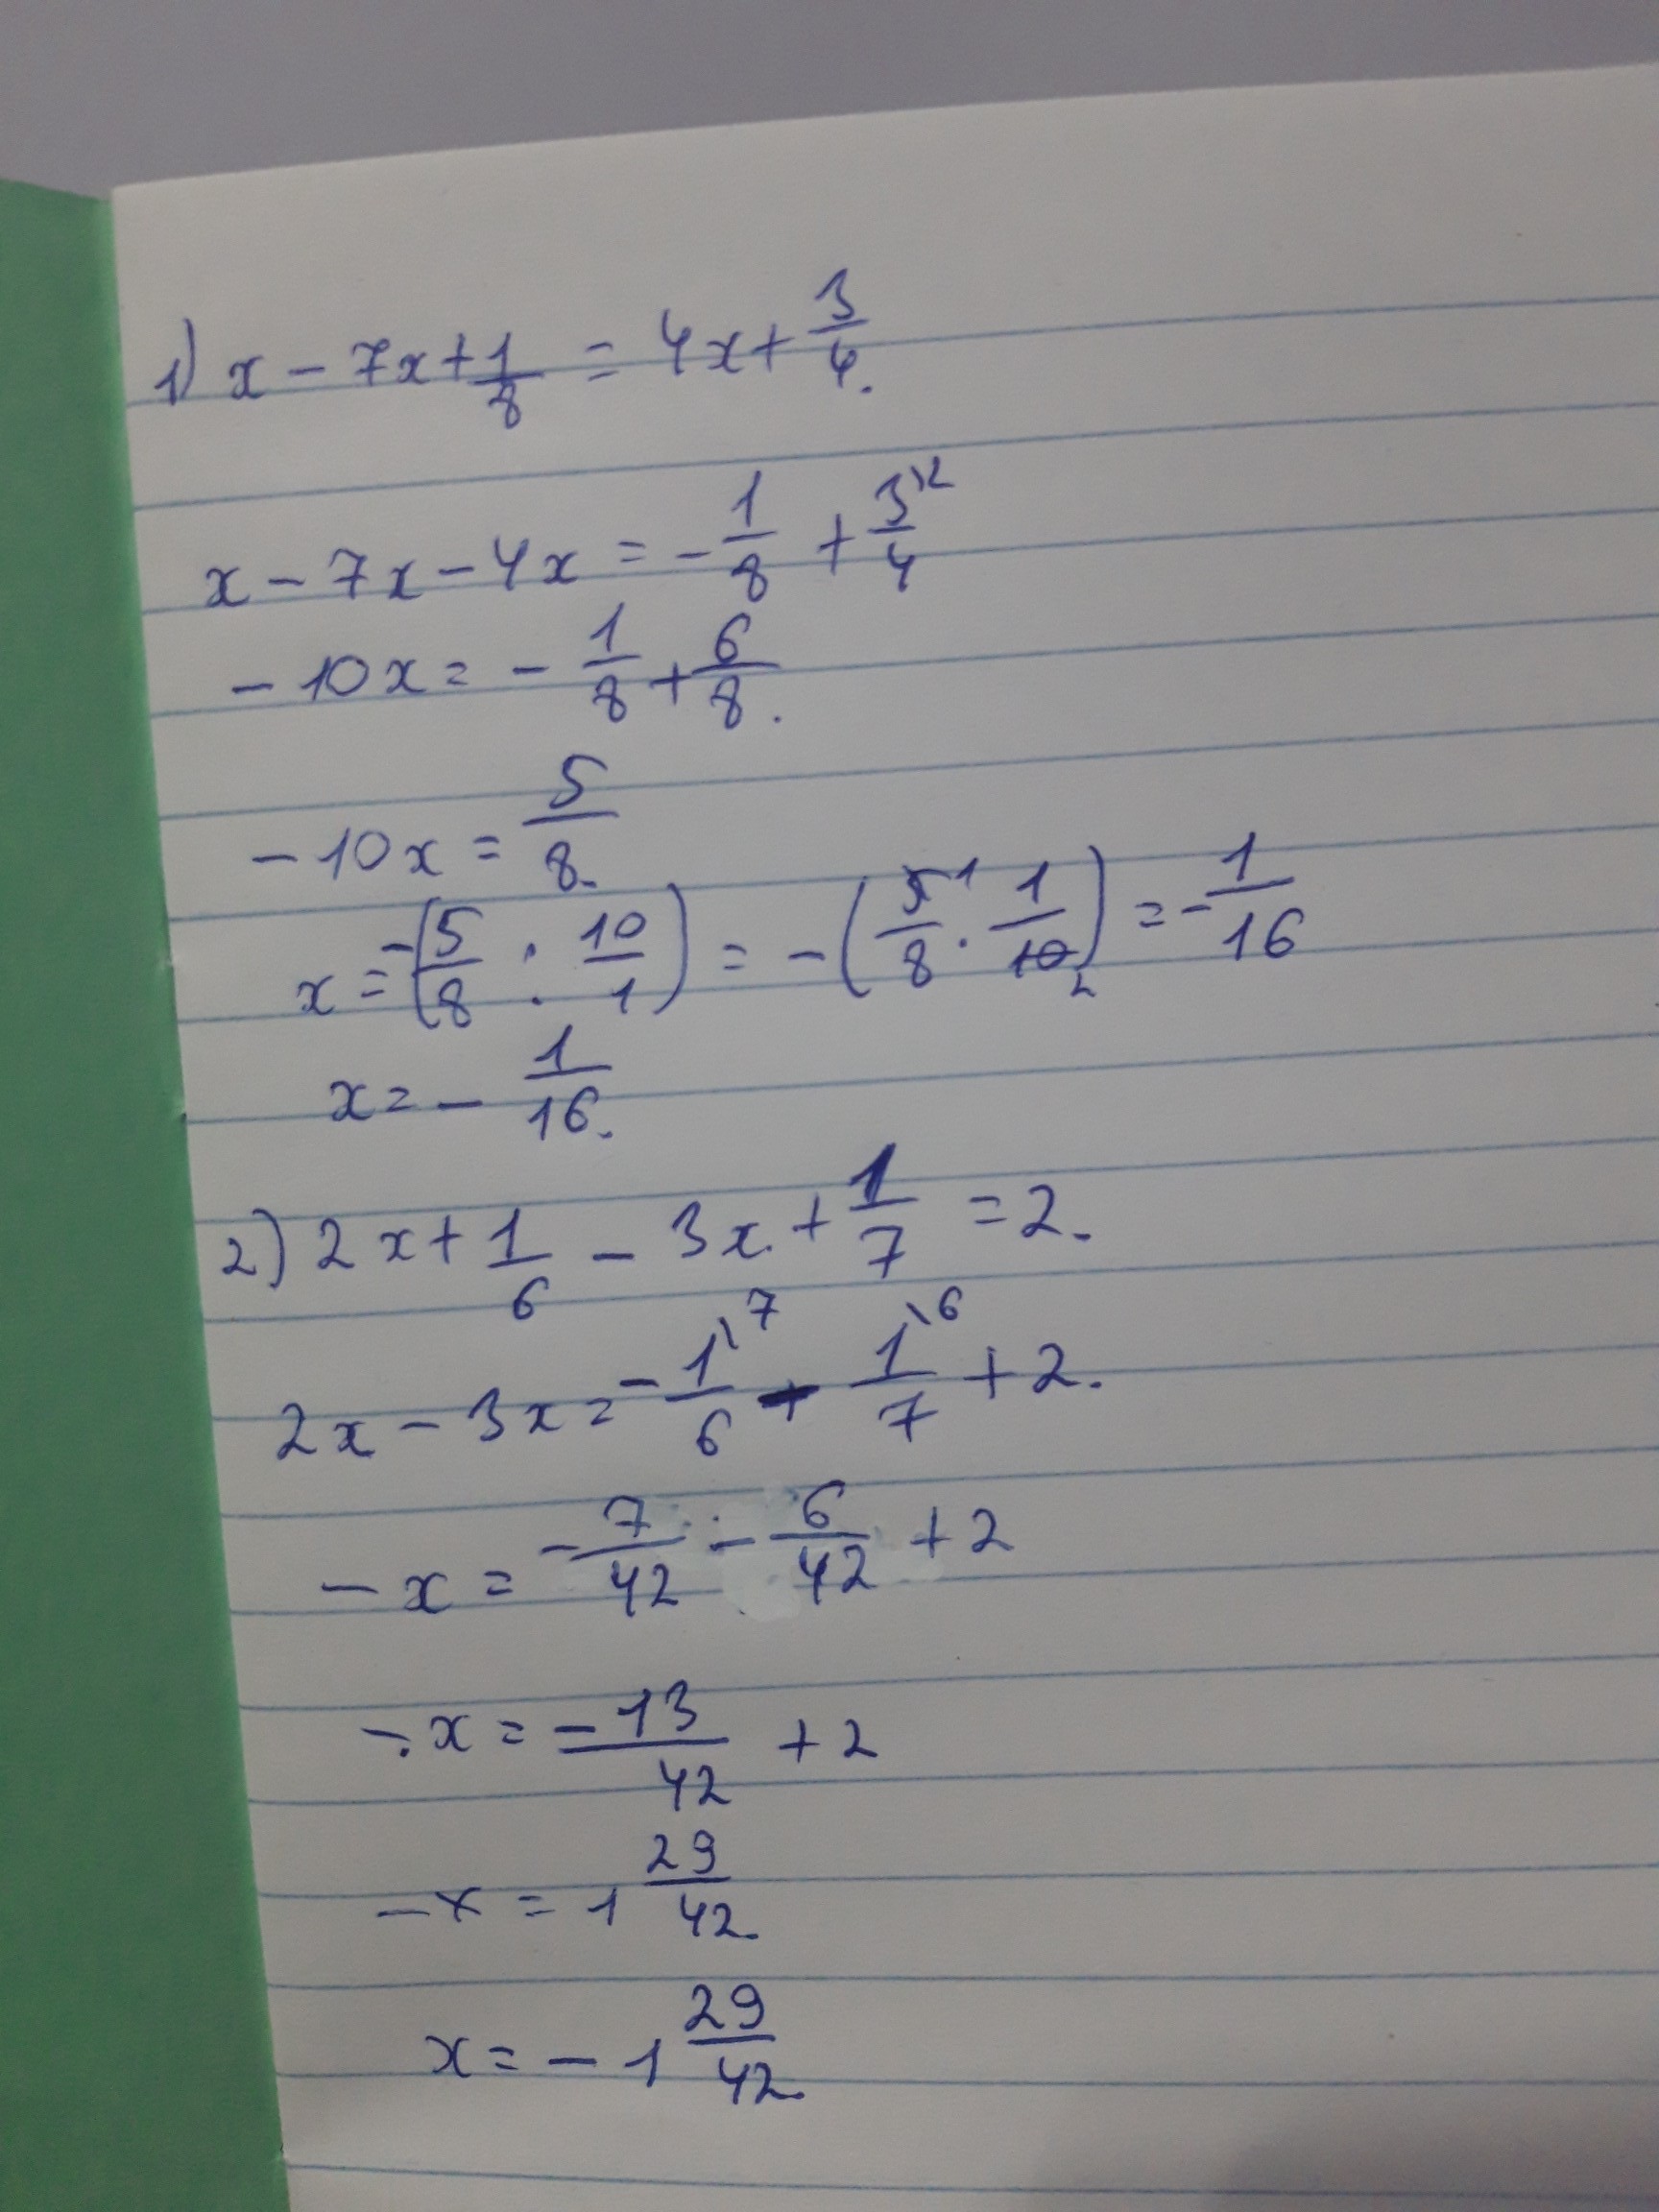 1) x - 7x + 1/8 = 4x + 3/4.
x - 7x - 4x = - 1/8 + 3\2/4
- 10x = - 1/8 + 6/8.
- 10x = 5/8.
x = -(5/8 : 10/1) = - (5 1/8 · 1/10 2) = - 1/16
x = - 1/16.
2) 2x + 1/6 - 3x + 1/7 = 2.
2x - 3x = - 1\7/6 - 1\6/7 + 2.
- x = - 7/42 - 6/42 + 2
- x = - 13/42 + 2
- x = 1 29/42.
x = - 1 29/42.